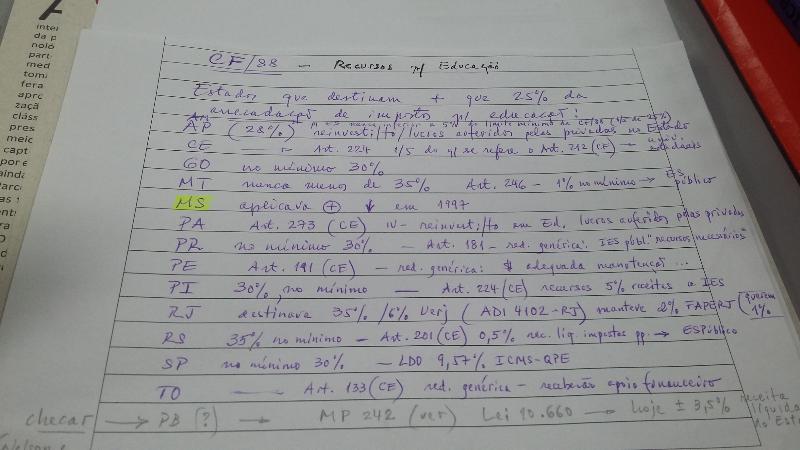 intei
da p
noló
part
med
tomi
fera
apro
zaçã
cláss
pres
meic
capt
por e
ainda
Parco
CF/88 - Recursos p/ Educação
Estados que destinam + que 25% da
arrecadação de imposto p/ educação:
AP (28%) reinvesti/to/lucros auferidos pelas privadas no Estado
CE — Art. 224 1/5 do q/ se refere o Art. 212 (CF)
GO no mínimo 30%
MT nunca menos de 35% Art. 246 - 1% no mínimo → ES público
MS aplicava + ↓ em 1997
PA Art. 273 (CE) IV- reinvesti/to em Ed. lucros auferidos pelas privadas
PR no mínimo 30% - Art. 181 - red. genérica: IES públ. "recursos necessários"
PE Art. 191 (CE) - red. genérica: $ adequada manutenção ...
PI 30%, no mínimo — Art. 224 (CE) recursos 5% receitas a IES
RJ destinava 35% /6% Uerj (ADI 4102-RJ) manteve 2% FAPERJ (querem 1%
RS 35% no mínimo - Art. 201 (CE) 0,5% rec. liq. impostos pp. → ESPúblico
SP no mínimo 30% - LDO 9,57% ICMS-QPE
TO — Art. 133 (CE) red. genérica - receberão apoio financeiro
checar → PB (?) → MP 242 (ver) Lei 10.660 → hoje ± 3,5% receita líquida no Est
Nelson